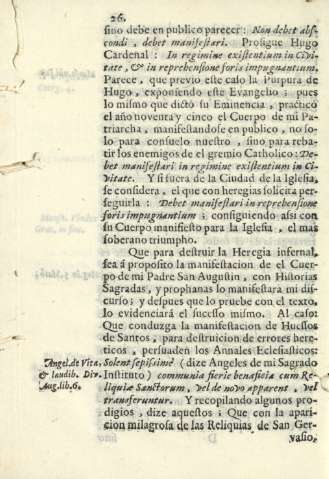 26.
sino debe en publico parecer: Non debet abs-
condi, debet manifestari. Prosigue Hugo
Cardenal: In regimine existentium in Civi-
tate, & in reprehensione foris impugnantium.
Parece, que previo este caso la Purpura de
Hugo, exponiendo este Evangelio; pues
lo mismo que dictó su Eminencia, practicó
el año noventa y cinco el Cuerpo de mi Pa-
triarcha, manifestandose en publico, no so-
lo para consuelo nuestro, sino para reba-
tir los enemigos de el gremio Catholico: De-
bet manifestari in regimine existentium in Ci-
vitate. Y si fuera de la Ciudad de la Iglesia,
se considera, el que con heregias solicita per-
seguirla: Debet manifestari in reprehensione
foris impugnantium; consiguiendo assi con
su Cuerpo manifiesto para la Iglesia, el mas
soberano triumpho.
Que para destruir la Heregia infernal,
sea á proposito la manifestacion de el Cuer-
po de mi Padre San Augustin, con Historias
Sagradas, y prophanas lo manifestara mi dis-
curso; y despues que lo pruebe con el texto,
lo evidenciará el sucesso mismo. Al caso:
Que conduzga la manifestacion de Huessos
de Santos, para destruicion de errores here-
ticos, persuaden los Annales Eclesiasticos:
Angel. de Vita,
& laudib. Div.
Aug. lib. 6.
Solent sepissimè (dize Angeles de mi Sagrado
Instituto) communia furie beneficia cum Re-
liquiæ Sanctorum, vel de novo apparent, vel
transferuntur. Y recopilando algunos pro-
digios, dize aquestos; Que con la apari-
cion milagrosa de las Reliquias de San Ger-
vasio,